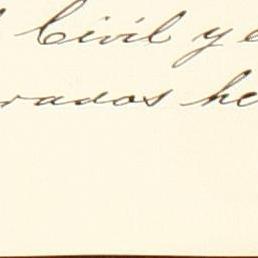 Civil y
rados he